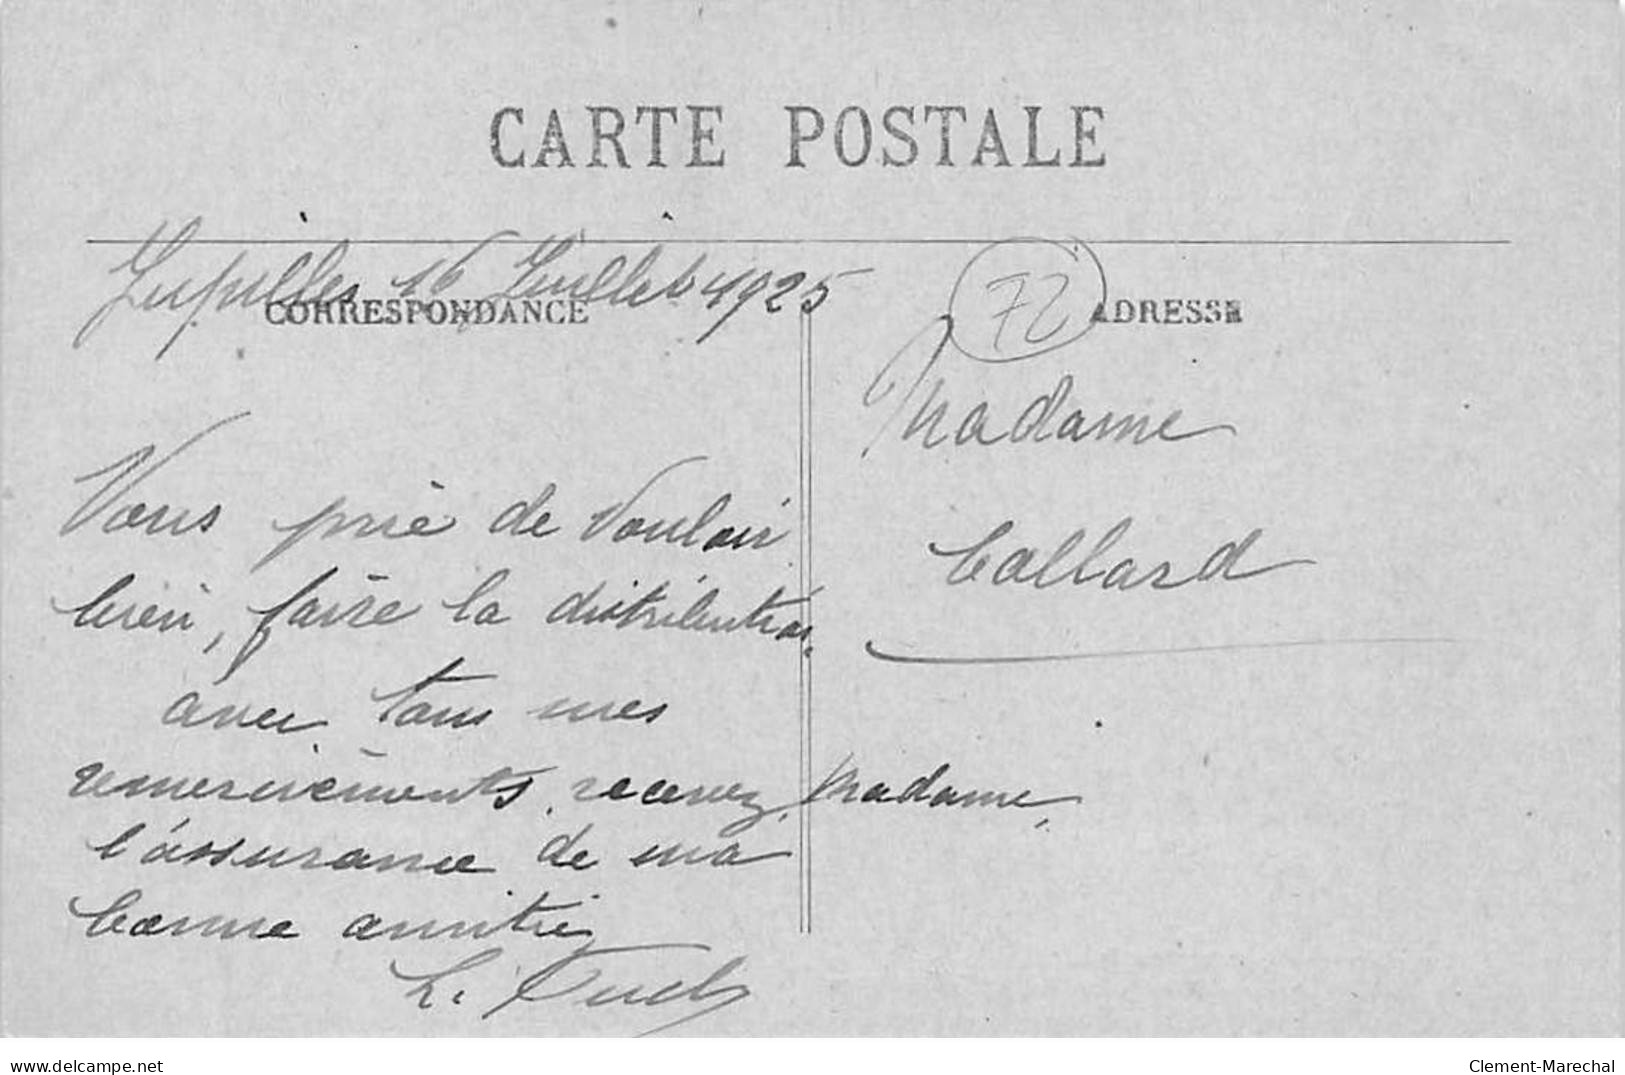 CARTE POSTALE
Jupilles 16 Juillet 1925
CORRESPONDANCE
72
ADRESSE
Madame
Collard
Vous prie de vouloir
bien, faire la distribution,
avec tous mes
remerciements, recevez, Madame,
l'assurance de ma
bonne amitié
L.
delcampe.net
Clement-Marechal